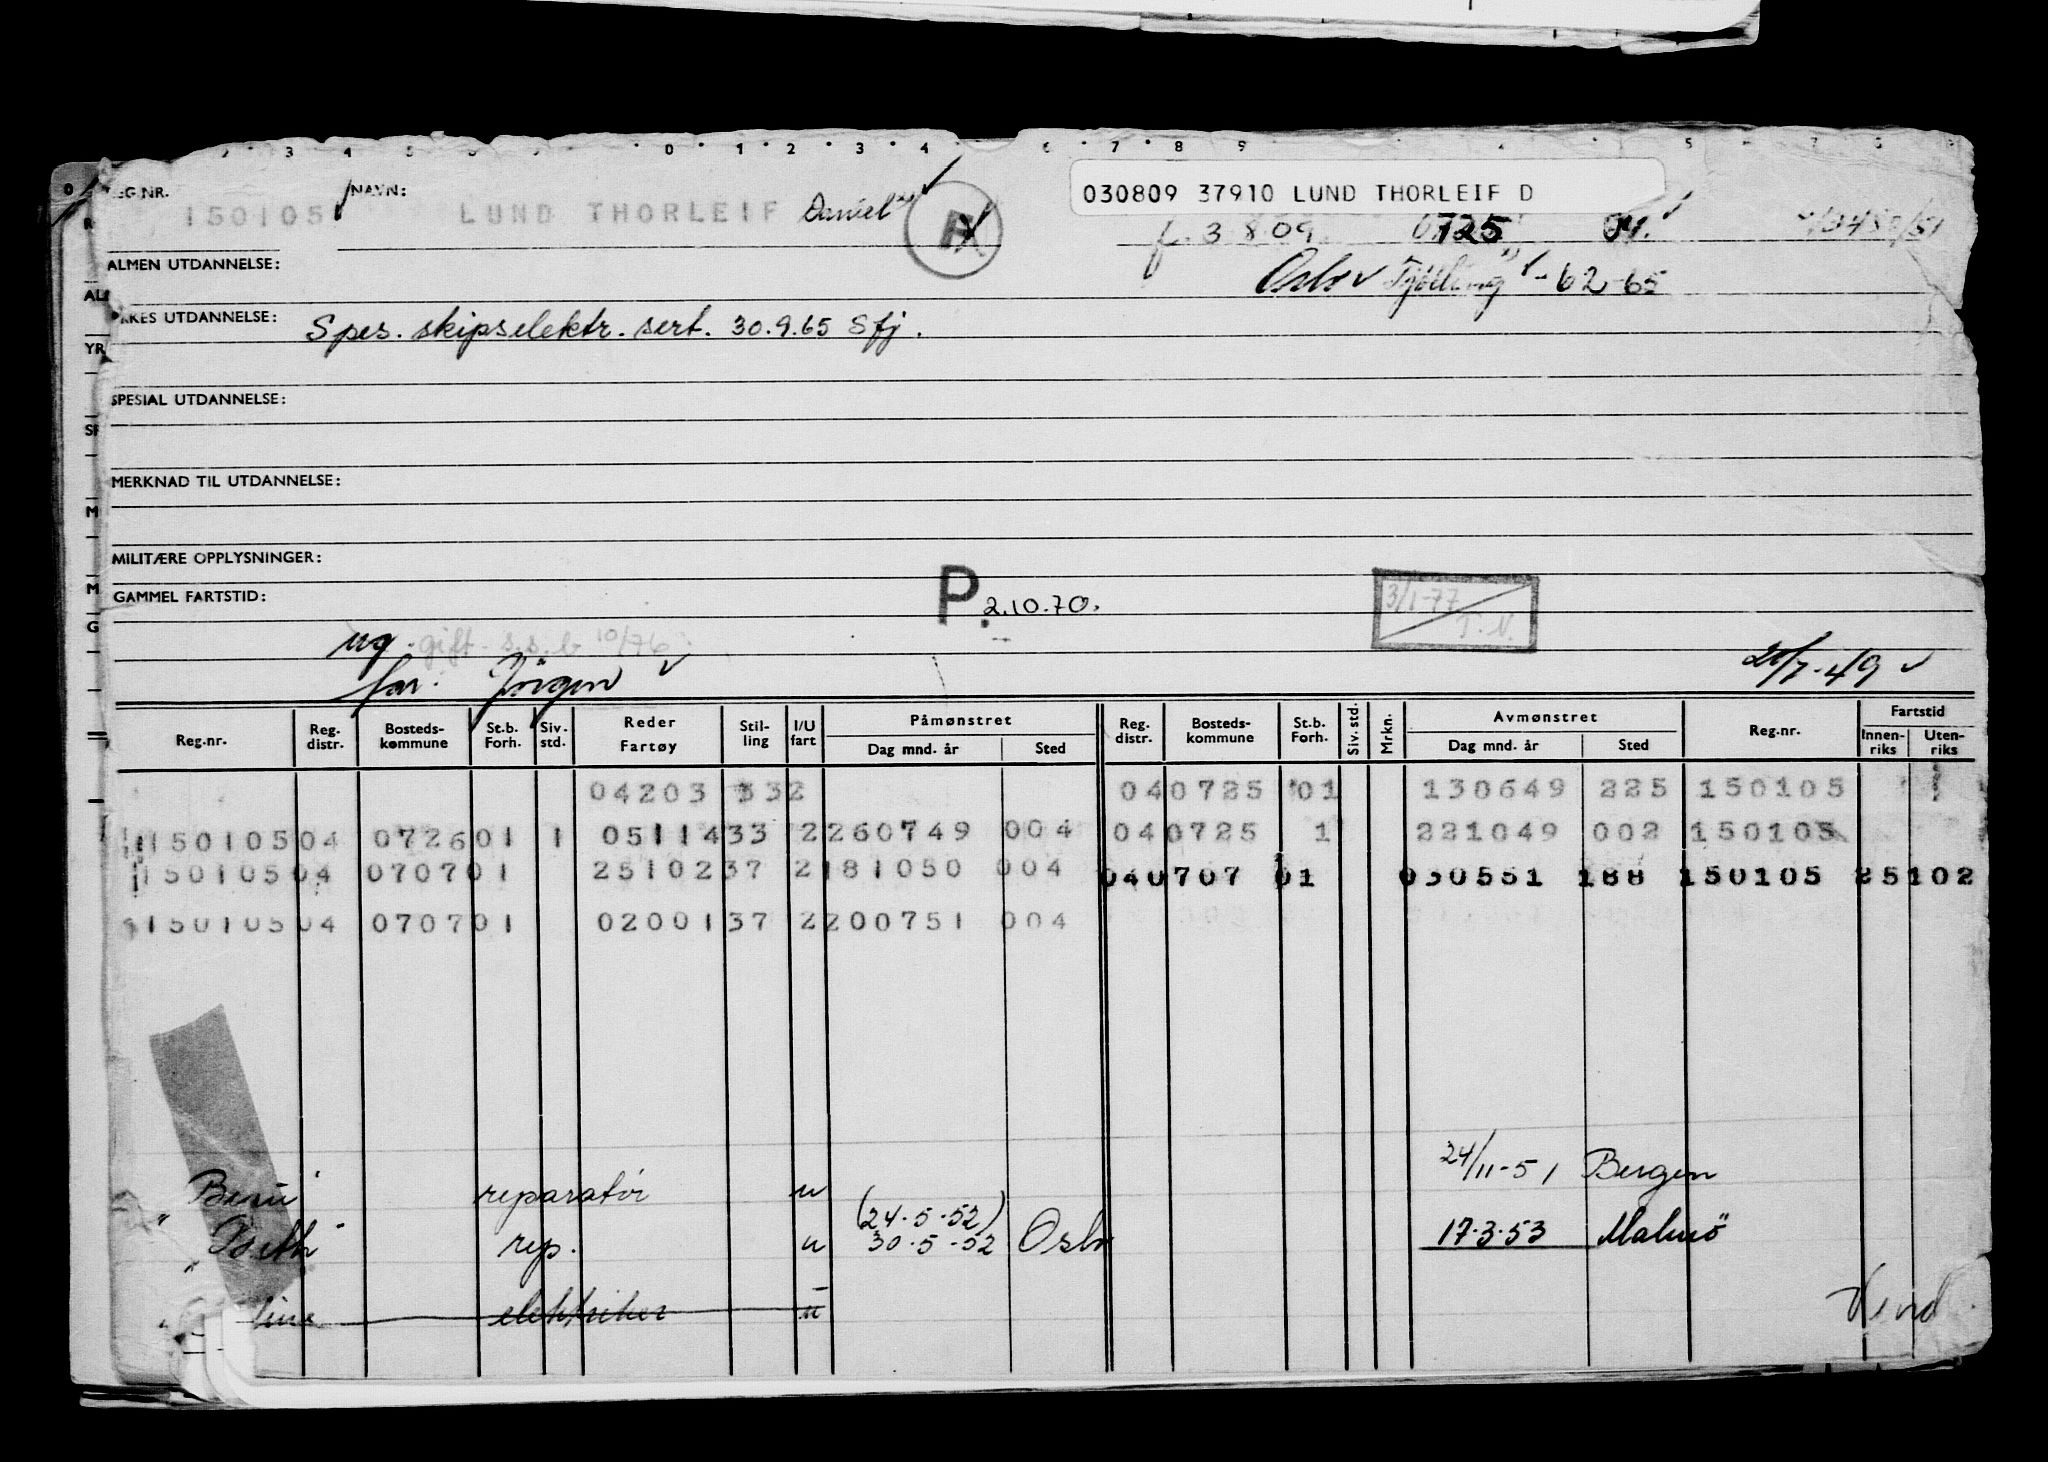 030809 37910 LUND THORLEIF D
REG.NR. NAVN:
150105 LUND THORLEIF Daniel
f. 3 8 09 0725 04.
ALMEN UTDANNELSE:
Oslo Tjölling - 62-65
YRKES UTDANNELSE: Spes. skipselektr. sert. 30.9.65 Sfj.
SPESIAL UTDANNELSE:
MERKNAD TIL UTDANNELSE:
MILITÆRE OPPLYSNINGER:
GAMMEL FARTSTID: P. 2.10.70.
3/1-77
T.N.
ug. gift. s.s.b 10/76
far. Jörgen 20/7-49
Reg.nr. Reg. distr. Bosteds-kommune St.b. Forh. Siv. std. Reder Fartøy Stil-ling I/U fart Påmønstret Dag mnd. år Sted Reg. distr. Bosteds-kommune St.b. Forh. Siv. std. Mrkn. Avmønstret Dag mnd. år Sted Reg.nr. Fartstid Innen-riks Uten-riks
04203 332 040725 01 130649 225 150105
150105 04 0726 01 1 05114 33 2 260749 004 040725 1 221049 002 150105
150105 04 0707 01 25102 37 2 181050 004 040707 01 030551 188 150105 25102
150105 04 0707 01 02001 37 2 200751 004
24/11-51 Bergen
reparatör u
(24.5.52)
rep. u 30.5.52 Oslo 17.3.53 Malmö
elektriker u
Vend